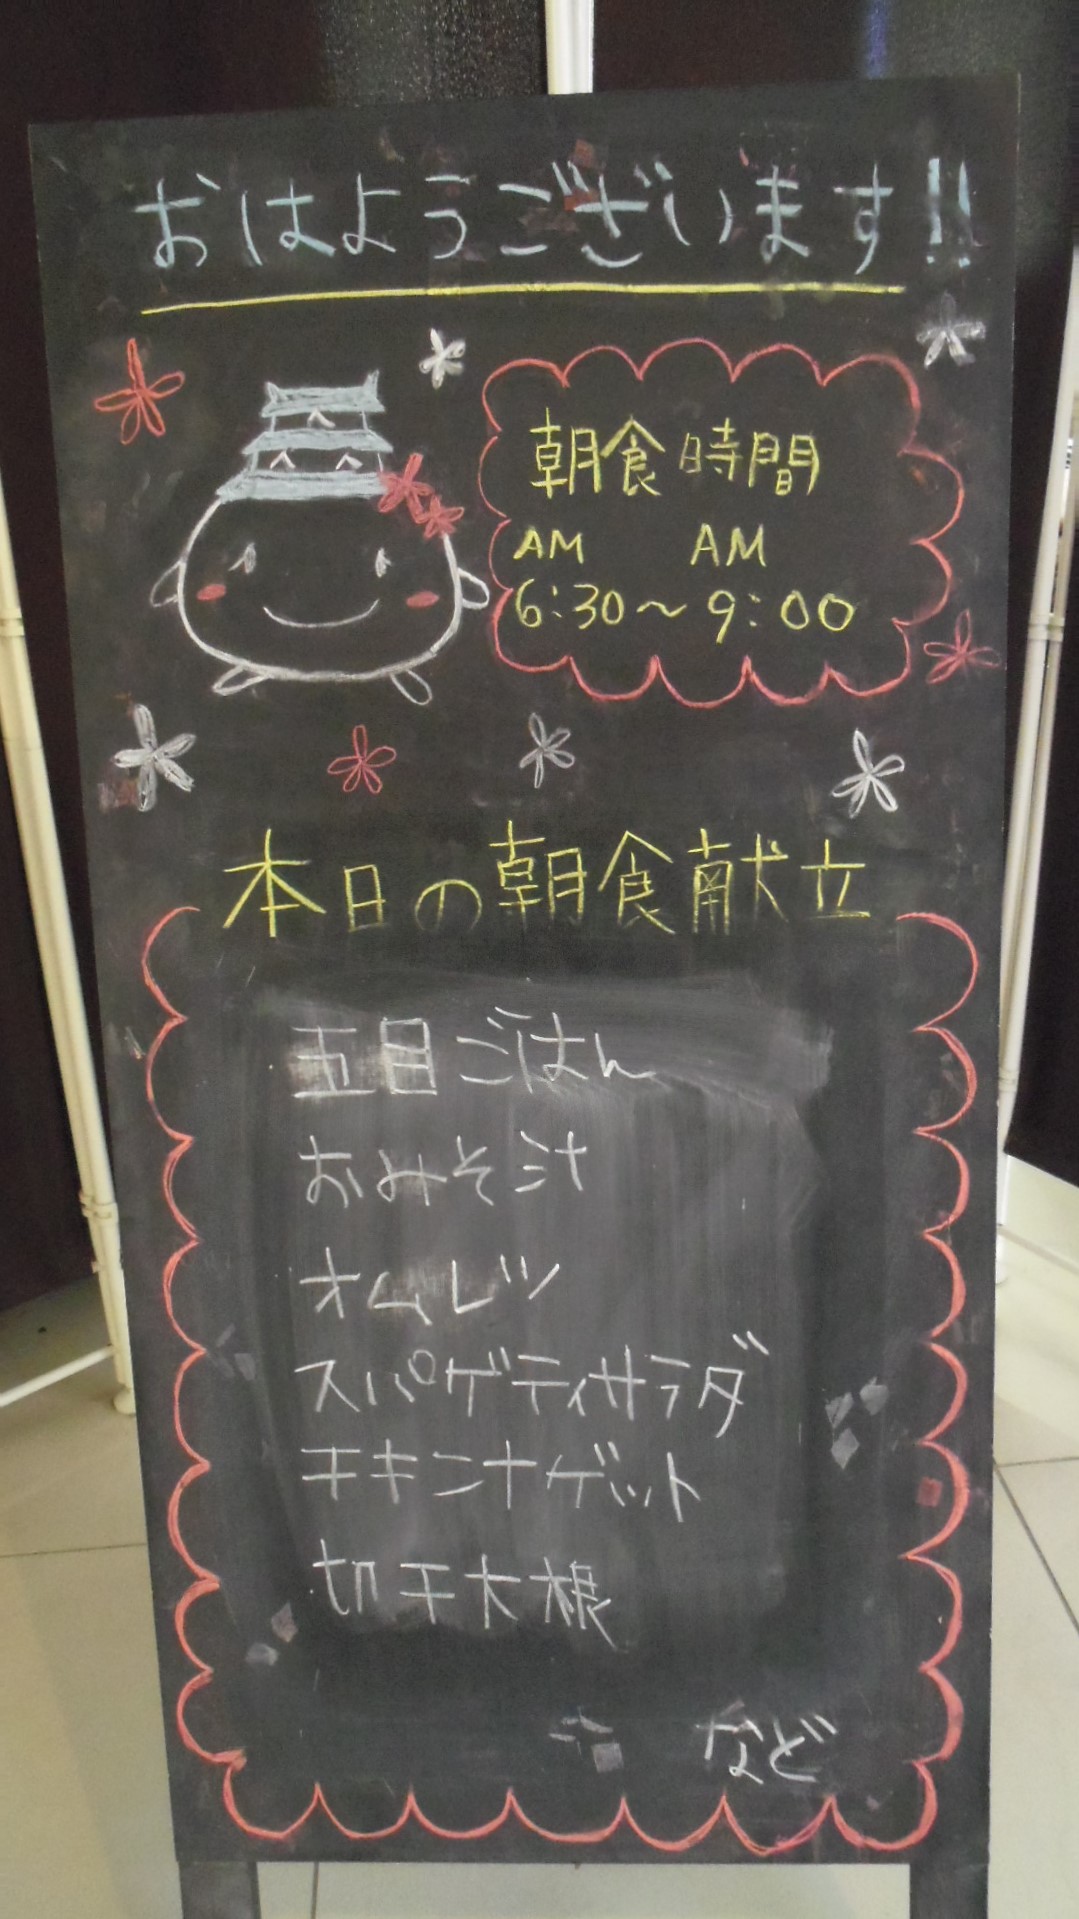 おはようございます!!
朝食時間
AM AM
6:30～9:00
本日の朝食献立
五目ごはん
おみそ汁
オムレツ
スパゲティサラダ
チキンナゲット
切干大根
など